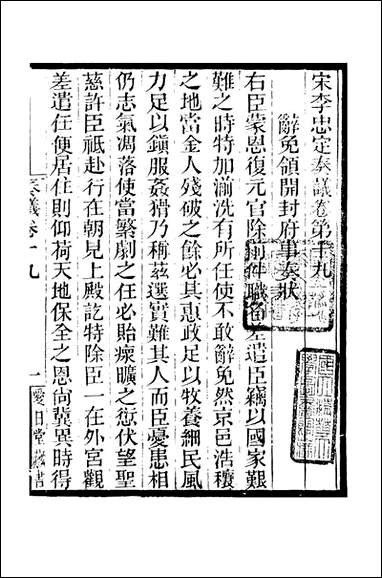 宋李忠定奏議卷第十九
辭免領開封府事奏狀
右臣蒙恩復元官除前件職名差遣臣竊以國家艱
難之時特加湔洗有所任使不敢辭免然京邑浩穰
之地當金人殘破之餘必其惠政足以牧養細民風
力足以鎮服姦猾乃稱茲選實難其人而臣憂患相
仍志氣凋落使當繁劇之任必貽瘝曠之愆伏望聖
慈許臣祗赴行在朝見上殿訖特除臣一在外宮觀
差遣任便居住則仰荷天地保全之恩尚冀異時得
奏議卷十九
一
愛日堂藏書